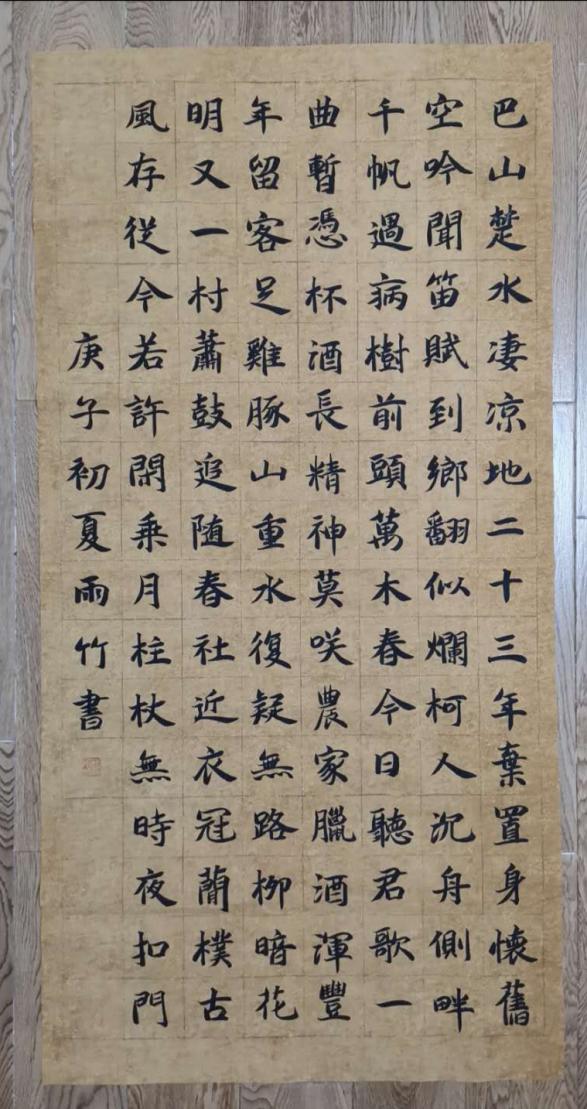 巴山楚水凄凉地二十三年棄置身懷舊
空吟聞笛賦到鄉翻似爛柯人沉舟側畔
千帆過病樹前頭萬木春今日聽君歌一
曲暫憑杯酒長精神莫咲農家臘酒渾豐
年留客足雞豚山重水復疑無路柳暗花
明又一村蕭鼓追随春社近衣冠蕳樸古
風存從今若許閑乘月柱杖無時夜扣門
庚子初夏雨竹書